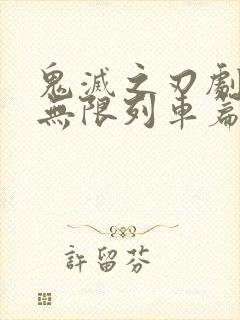 鬼滅之刃劇
無限列車篇
許留芬